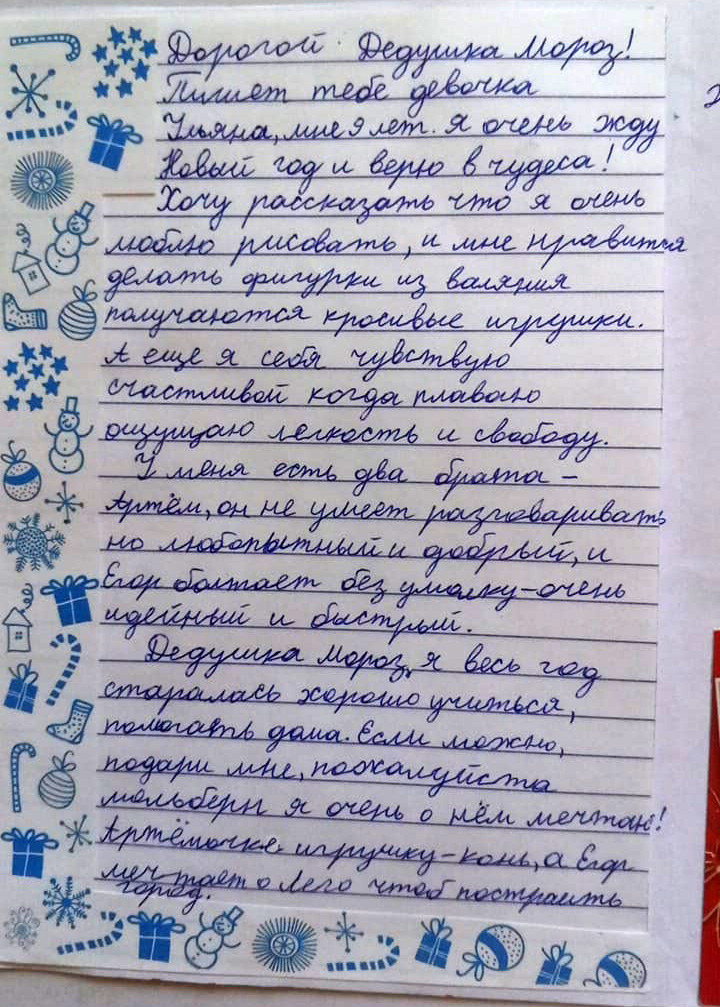 Дорогой Дедушка Мороз!
Пишет тебе девочка
Ульяна, мне 9 лет. Я очень жду
Новый год и верю в чудеса!
Хочу рассказать что я очень
люблю рисовать, и мне нравится
делать фигурки из валяния
получаются красивые игрушки.
А еще я себя чувствую
счастливой когда плаваю
ощущаю легкость и свободу.
У меня есть два брата -
Артём, он не умеет разговаривать
но любопытный и добрый, и
Егор болтает без умолку - очень
идейный и быстрый.
Дедушка Мороз, я весь год
старалась хорошо учиться,
помогать дома. Если можно,
подари мне, пожалуйста
мольберт я очень о нём мечтаю!
Артёмочке игрушку - конь, а Егор
мечтает о Лего чтоб построить
город.